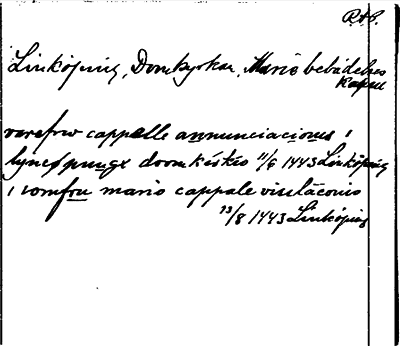 RAP.
Linköping, Domkyrkan, Marie bebådelses
kapell
varefrw cappelle annunciacionis i
lyncøpungx doomkirkio 11/6 1443 Linköping
i iomfru marie cappale visitacionis
13/8 1443 Linköping